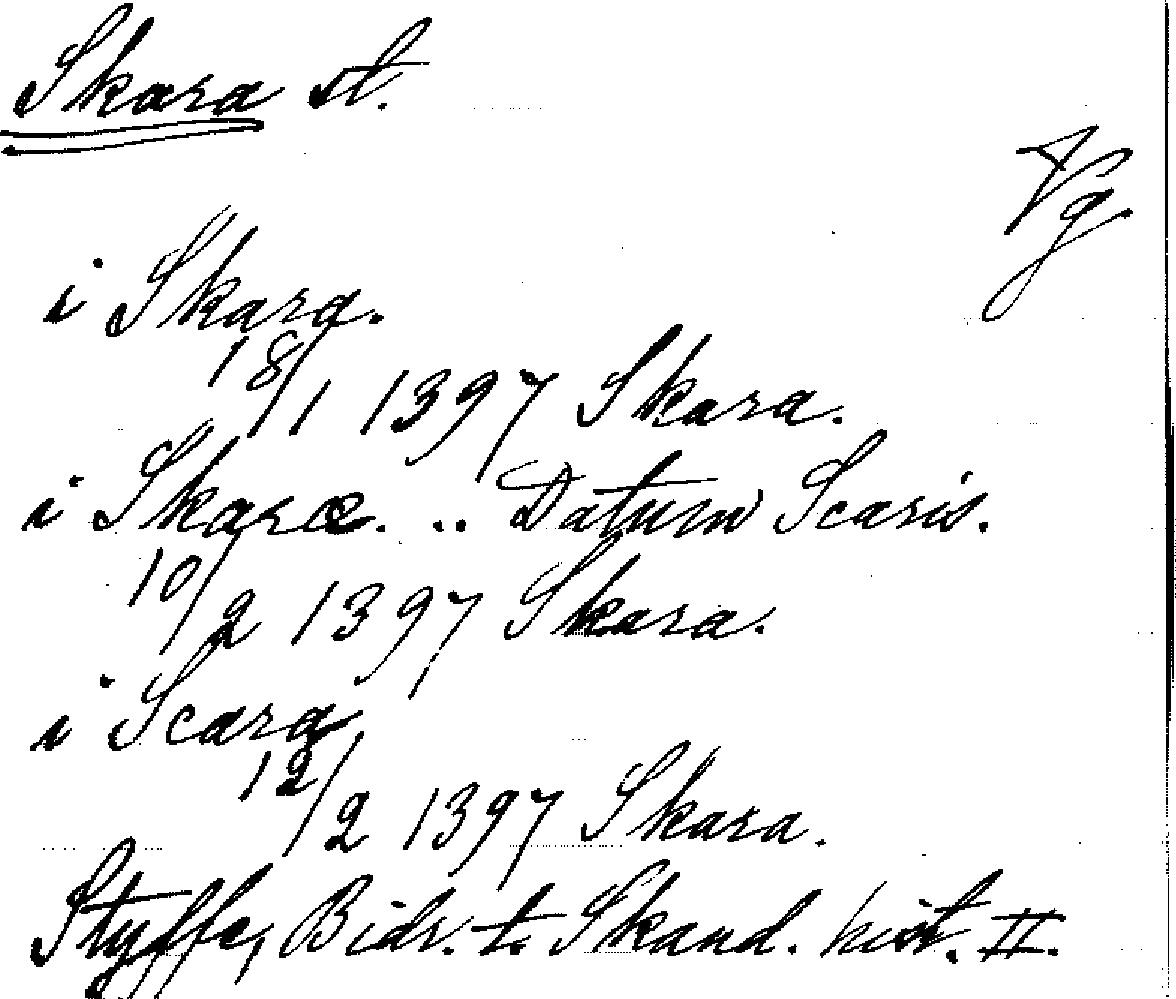 Skara st.
Vg.
i Skara.
18/1 1397 Skara.
i Skaræ. .. Datum Scaris.
10/2 1397 Skara.
i Scara
12/2 1397 Skara.
Styffe, Bidr. t. Skand. hist. II.